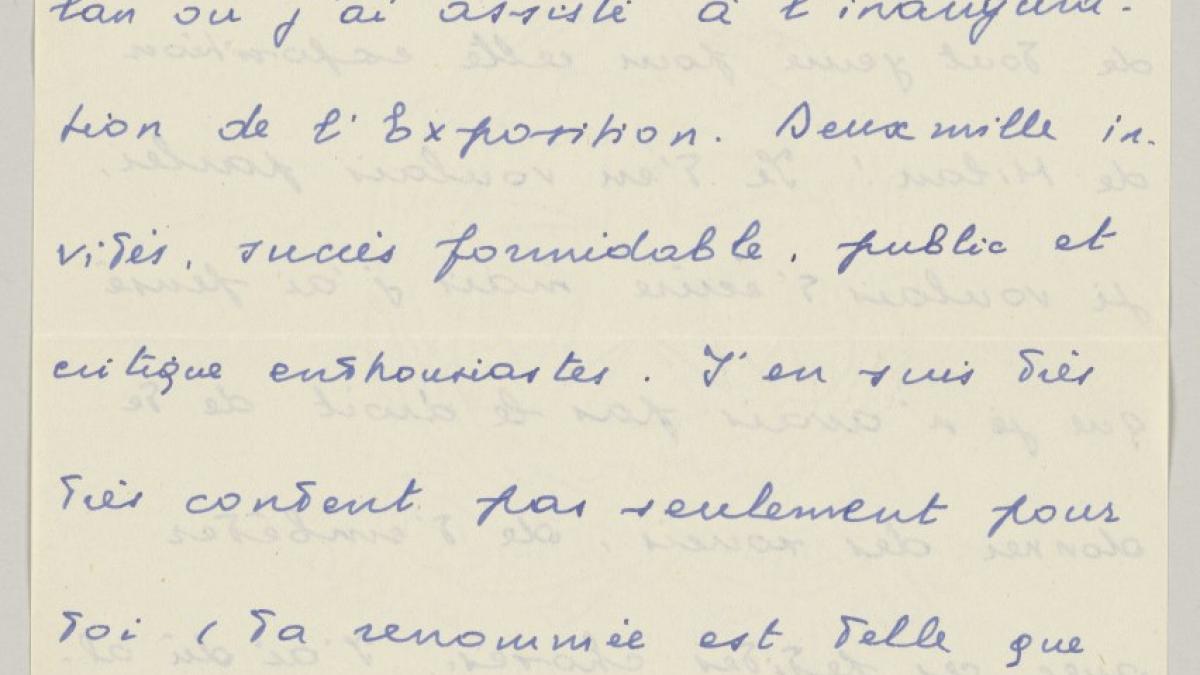 lan où j'ai assisté à l'inaugura-
tion de l'Exposition. Deux mille in-
vités, succès formidable, public et
critique enthousiastes. J'en suis très
très content pas seulement pour
toi (ta renommée est telle que